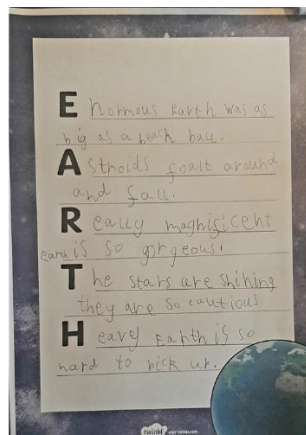 Enormous Earth was as
big as a beach ball.
Astroids foalt around
and fall.
Really magnificent
earth is so gorgeous.
The stars are shining
they are so cautious
Heavey Earth is so
hard to pick up.
twinkl